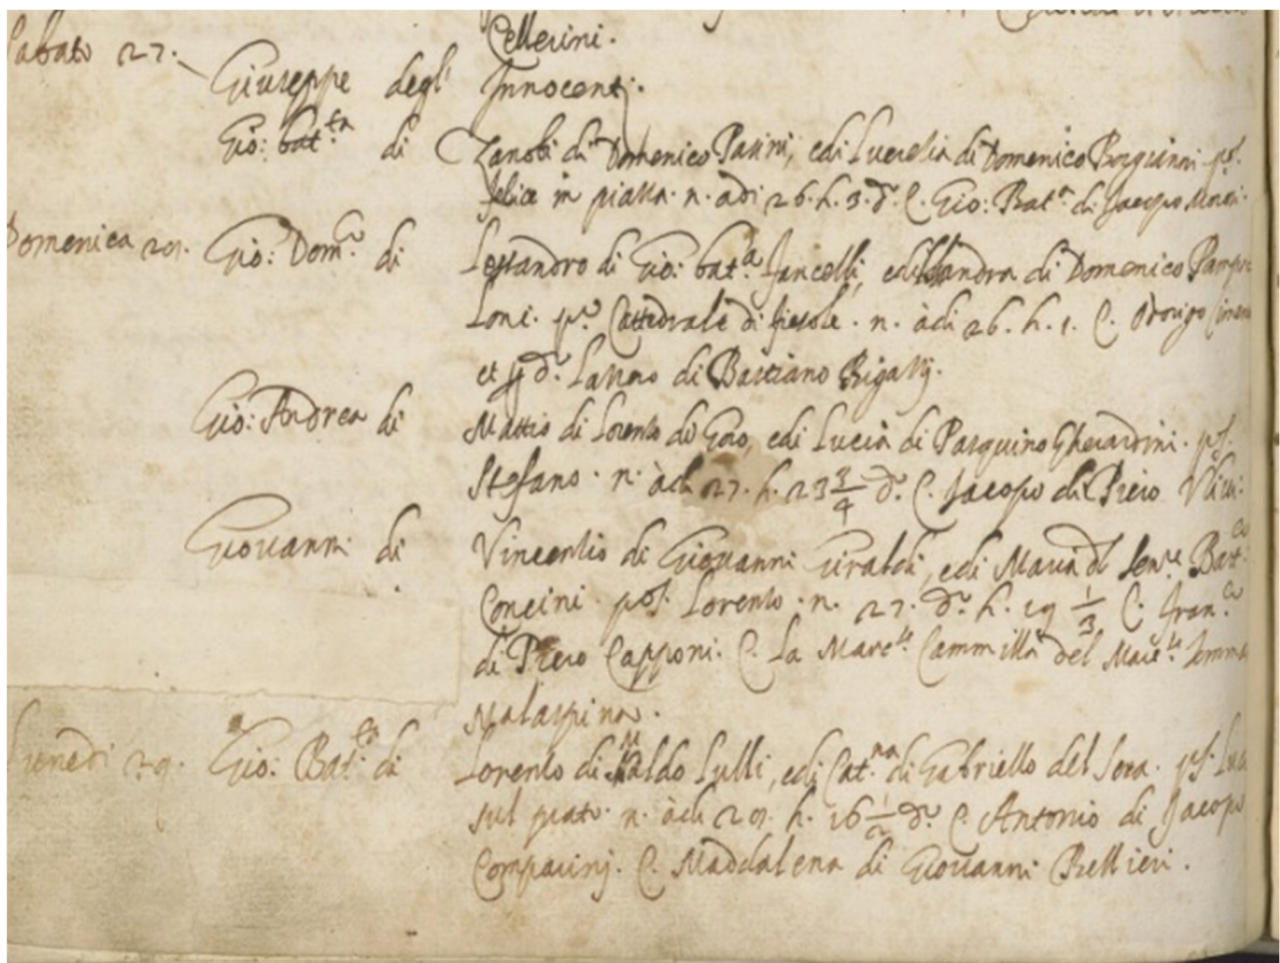 Cellerini.
Sabato 27. Giuseppe degl' Innocenti.
Gio: bat.ta di Zanobi di Domenico Parini, e di Lucretia di Domenico Borgianni. po.
felice in piazza. n. adi 26. h. 3. d.o C. Gio: Bat.a di Jacopo
Domenica 28. Gio: Dom.co di Lessandro di Gio: bat.a Jancelli, e di Sandra di Domenico
Loni. p.o Cattedrale di fiesole. n. àdi 26. h. 1. C.
et d.o Lazzero di Bastiano Rigatti.
Gio: Andrea di Mattio di Lorenzo di Goro, e di Lucia di Pasquino Gherardini. po.
Stefano. n. àdi 27. h. 23 3/4 d.o C. Jacopo di Piero
Giovanni di Vincentio di Giovanni Giraldi, e di Maria d Sen.re Bat.
Concini po. Lorenzo. n. 27. d.o h. 19 1/3 C. Fran.co
di Piero Capponi. C. La Marc. Cammilla del Marc.
Malaspina.
Lunedi 29. Gio: Bat.ta di Lorenzo di Lulli, e di Cat.na di Gabriello del Sera. po. Luca
sul prato. n. àdi 28. h. 16 1/2 d.o C. Antonio di Jacopo
Compagnj. C. Maddalena di Giovanni Rellieri.